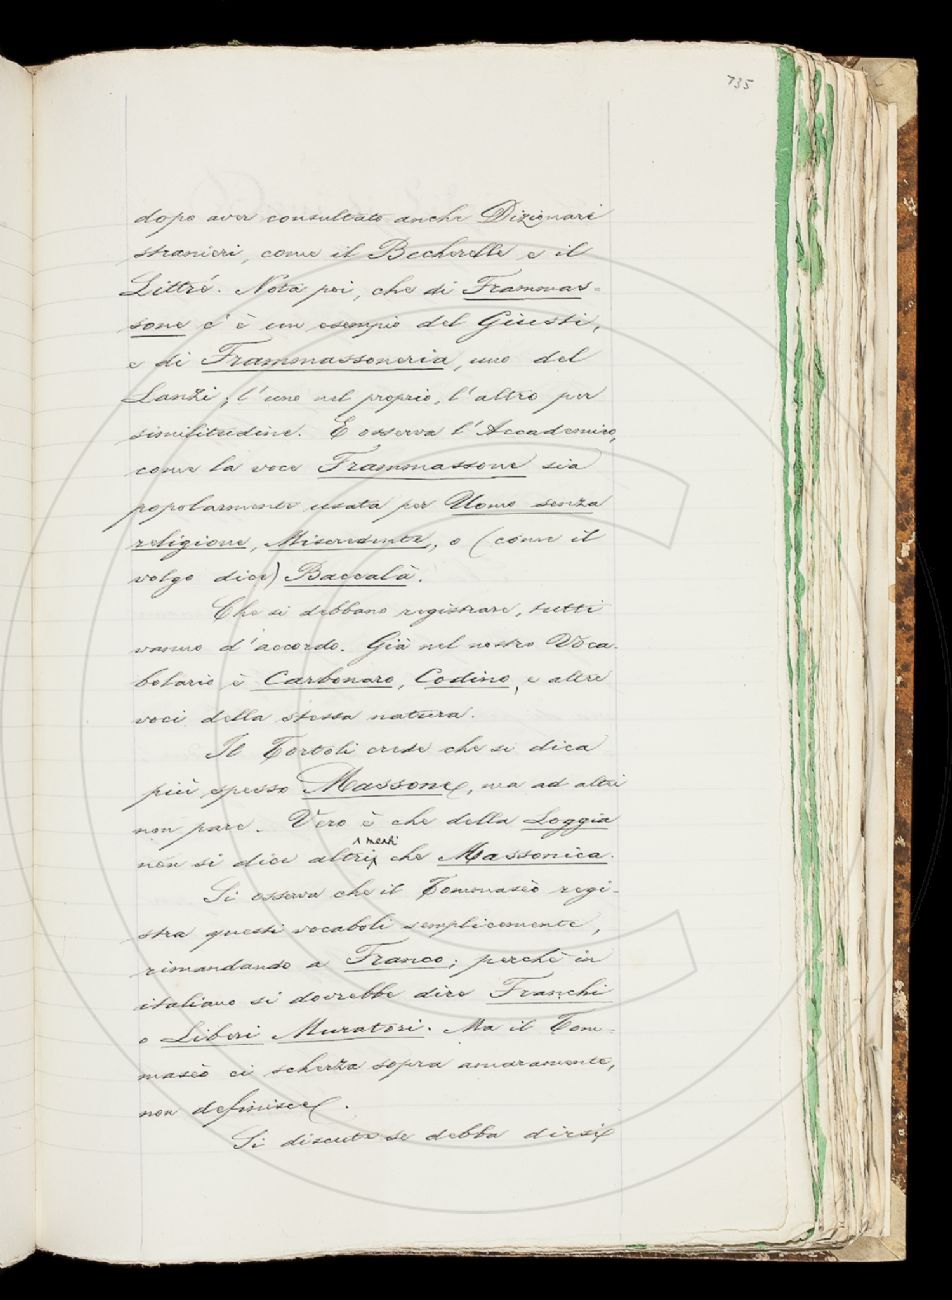 735
dopo aver consultato anche Dizionari
stranieri, come il Becherelle e il
Littré. Nota poi, che di Frammas-
sone c'è un esempio del Giusti,
e di Frammassoneria, uno del
Lanzi; l'uno nel proprio, l'altro per
similitudine. E osserva l'Accademico,
come la voce Frammassone sia
popolarmente usata per Uomo senza
religione, Miscredente, o (come il
volgo dice) Baccalà.
Che si debbano registrare, tutti
vanno d'accordo. Già nel nostro Voca-
bolario è Carbonaro, Codino, e altre
voci della stessa natura.
Il Tortoli crede che si dica
più spesso Massone, ma ad altri
non pare. Vero è che della Loggia
non si dice altrimenti che Massonica.
Si osserva che il Tommaseo regi-
stra questi vocaboli semplicemente,
rimandando a Franco; perchè in
italiano si dovrebbe dire Franchi
o Liberi Muratori. Ma il Tom-
maseo ci scherza sopra amaramente,
non definisce.
Si discute se debba dirsi